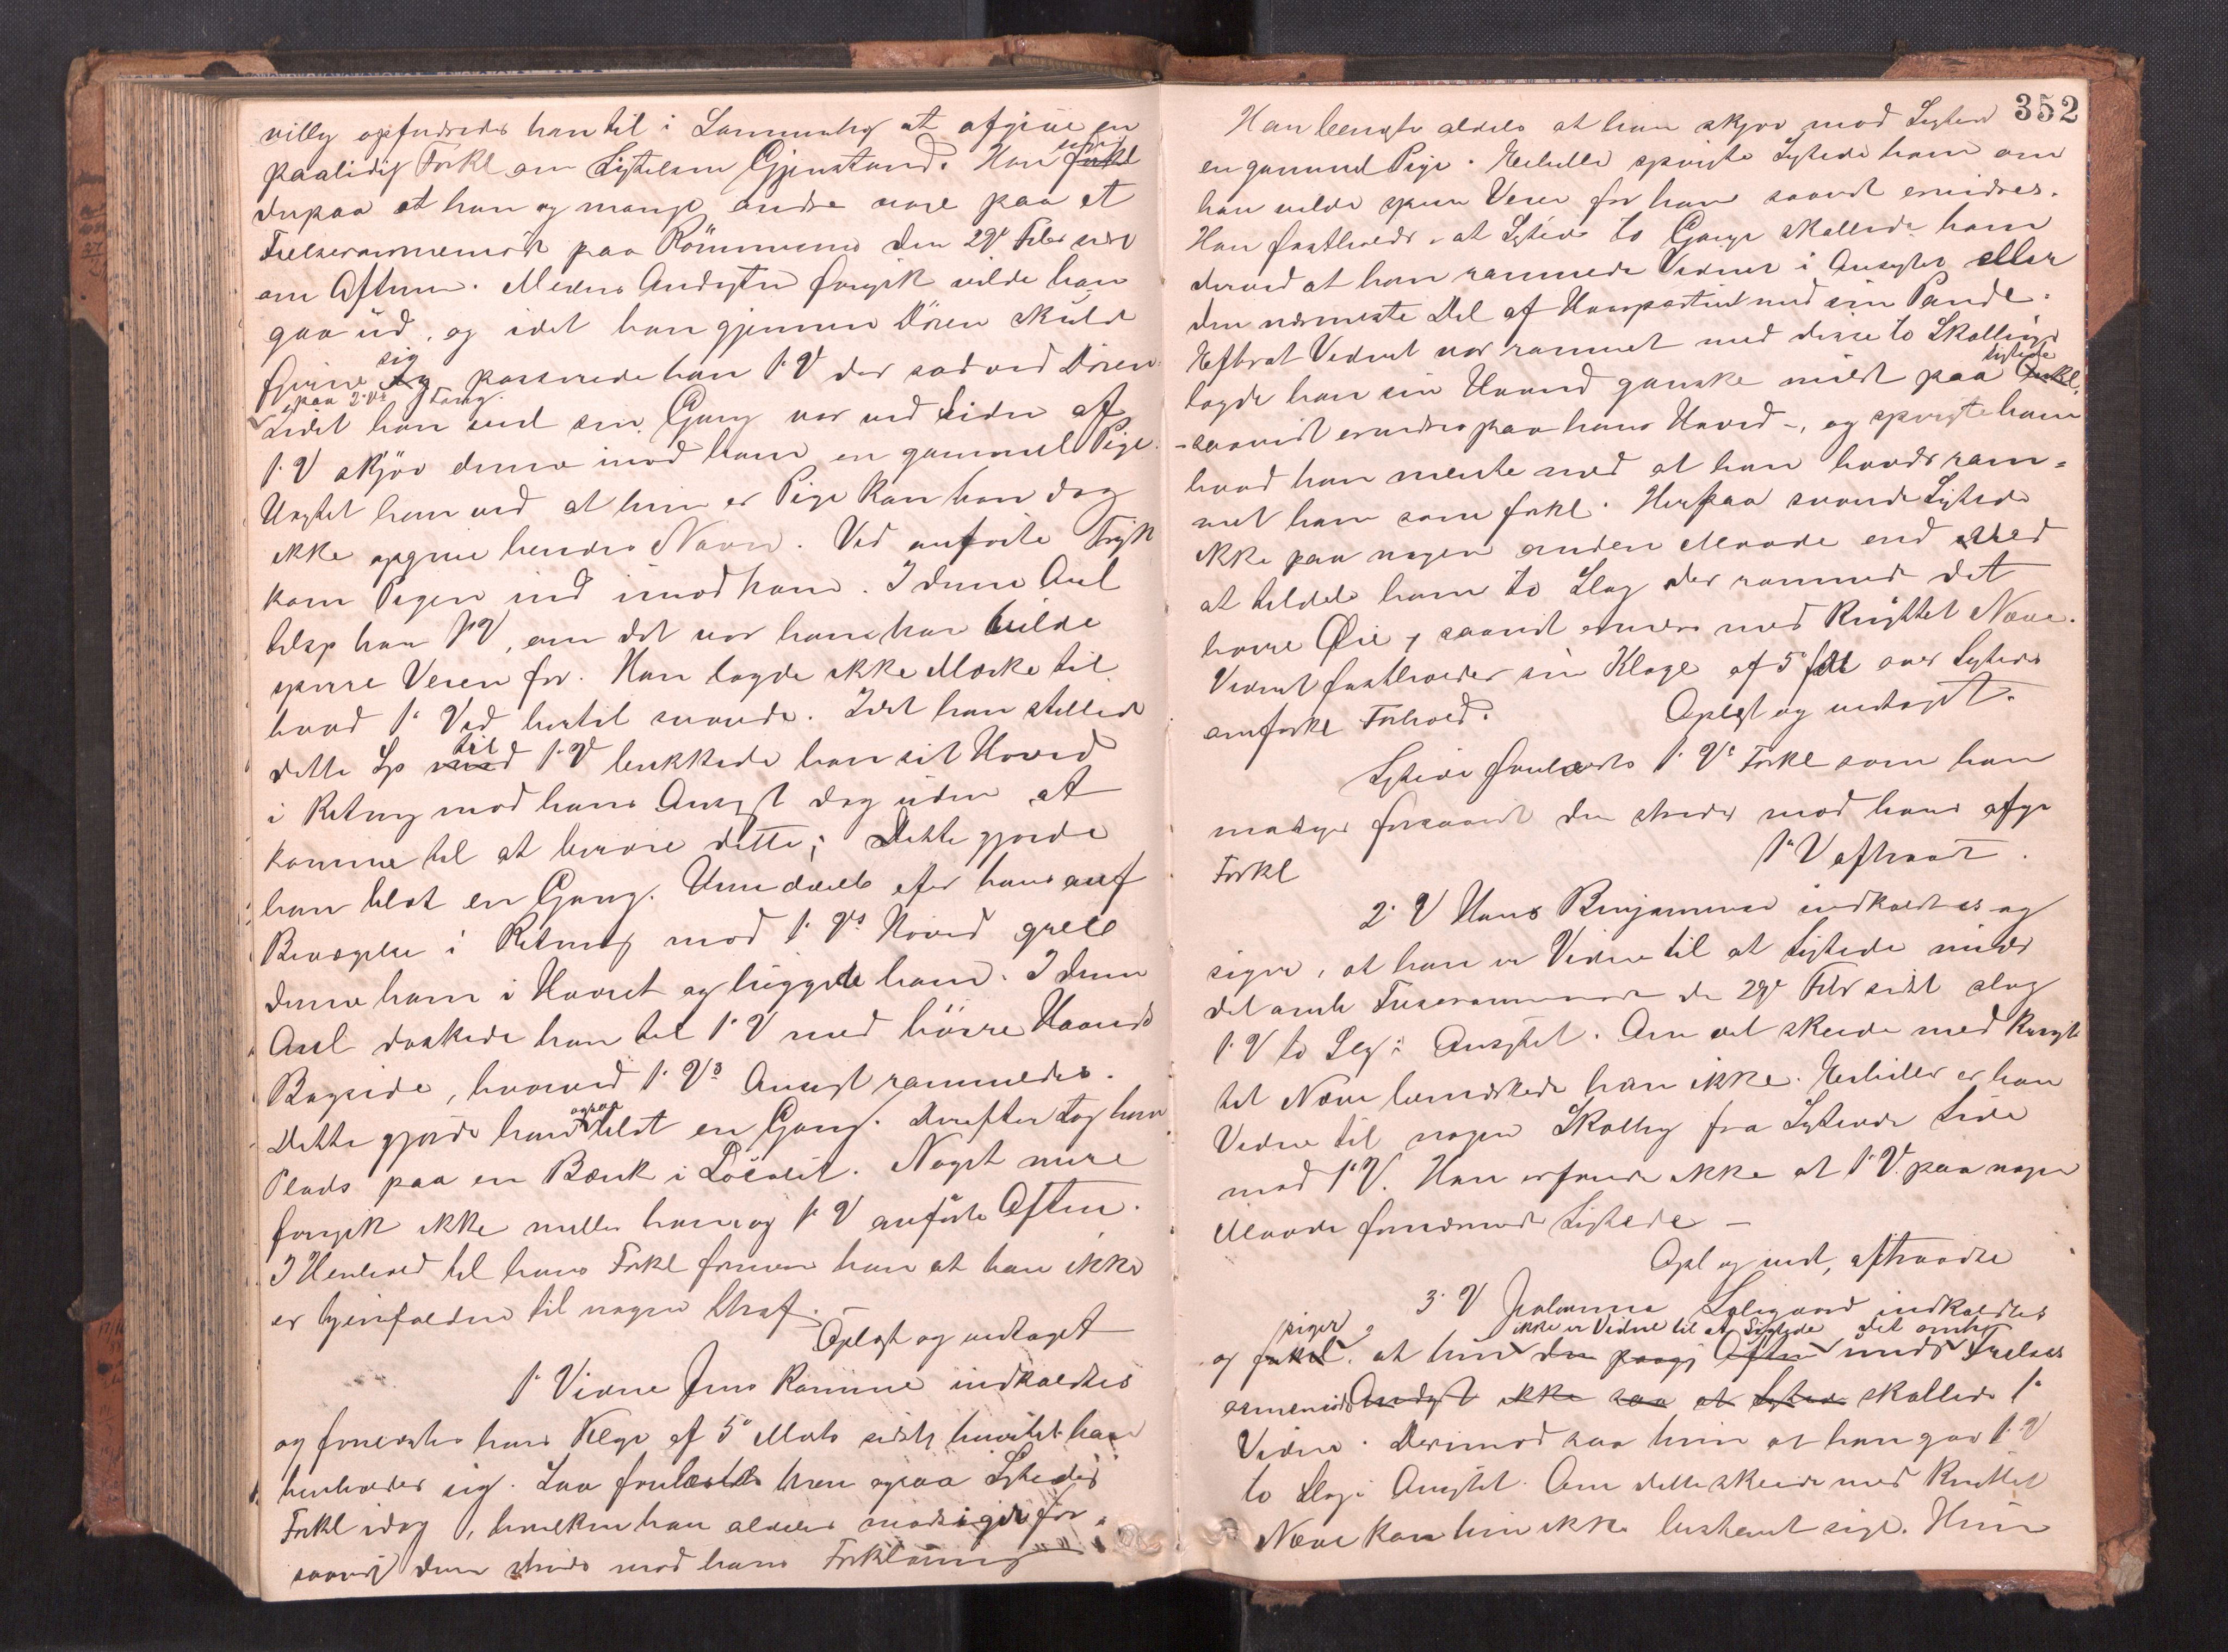 villig opfordredes han til i Sammenhæng at afgive en
paalidelig Forkl om Sigtelsens Gjenstand. Han forkl
derpaa at han og mange andre vare paa et
Frelsesarmemöde paa Römmen den 29de Febr sidst
om Aftenen. Medens Andagten foregik vilde han
gaa ud, og idet han gjennem Dören skulde
fjerne sig passerede han 1ste V der sad ved Dören.
paa 2. Vs Gang.
Idet han ved sin Gang var ved Siden af
1. V skjöv denne imod ham en gammel Pige.
Uagtet han ved at hun er Pige kan han dog
ikke opgive hendes Navn. Ved anförte Tryk
kom Pigen ind imod ham. I denne Anl
tilsp han 1ste V, om det var hans han vilde
sperre Veien for. Han lagde ikke Mærke til
hvad 1ste Vid hertil svarede. Idet han stillede
dette Sp til med 1ste V bukkede han sit Hoved
i Retning mod hans Ansigt dog uden at
komme til at berøre dette; Dette gjorde
han blot en Gang. Umiddelb efter hans anf
Bevægelse i Retning mod 1. Vs Hoved greb
denne ham i Haaret og luggede ham. I denne
Anl daskede han til 1ste V med höire Haands
Bagside, hvorved 1. Vs Ansigt rammedes.
Dette gjorde han ogsaa blot en Gang. Derefter tog han
Plads paa en Bænk i Localet. Noget mere
foregik ikke mellem ham og 1ste V anförte Aften.
I Henhold til hans Forkl formener han at han ikke
er hjemfalden til nogen Straf.
Oplæst og vedtaget
1ste Vidne Jens Ramme indkaldtes
og forelæstes hans Klage af 5te Marts sidstl hvortil han
henholder sig. Saa forelæstes ham ogsaa Sigtedes
Forkl idag, hvilken han aldeles modsiger for-
saavidt denne strider mod hans Forklaring
352
Han benegter aldeles at han skjöv mod Sigtede
en gammel Pige. Heller ikke spurgte Sigtede ham om
han vilde sperre Veien for ham saavidt erindres.
Han fastholder at Sigtede to Gange skallede ham
derved at han rammede Vidnet i Ansigtet eller
den nærmeste Del af Haarpartiet med sin Pande.
Efterat Vidnet var rammet med disse to Skallinger
lagde han sin Haand ganske mildt paa Sigtede Forkl,
- saavidt erindres paa hans Hoved -, og spurgte ham
hvad han mente med at han havde ram-
met ham som forkl. Herpaa svarede Sigtede
ikke paa nogen anden Maade end ved
at tildele ham to Slag der rammede det
høire Øie, saavidt erindres med knyttet Næve.
Vidnet fastholder sin Klage af 5te f M over Sigtedes
omforkl Forhold. Oplæst og vedtaget.
Sigtede forelæstes 1. Vs Forkl som han
modsiger forsaavidt den strider mod hans afgivne
Forkl 1ste V aftraadt.
2. V Hans Benjaminsen indkaldtes og
siger, at han er Vidne til at Sigtede under
det omh Frelsesarmemöde den 29de Febr sidst slog
1. V to Slag i Ansigtet. Om det skede med knyt-
tet Næve bemærkede han ikke. Heller ikke er han
Vidne til nogen Skalling fra Sigtedes Side
mod 1ste V. Han erfarede ikke at 1ste V. paa nogen
Maade fornærmede Sigtede -
Opl og vedt, aftraadte
3. V Johanna Solgaard indkaldtes
siger ikke er Vidne til at Sigtede det omh
og forkl. at hun den paagj Aften under Frelses
armemöde Andagt ikke saa at Sigtede skallede 1ste
Vidne. Derimod saa hun at han gav 1. V
to Slag i Ansigtet. Om dette skede med knyttet
Næve kan hun ikke bestemt sige. Hun